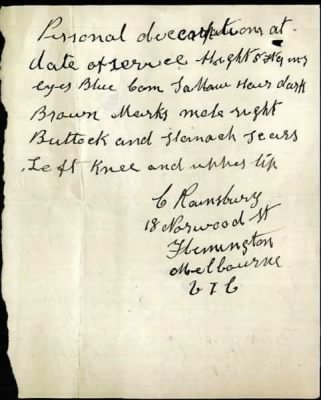 Personal discriptions at
date of service Height 5 ft 9 ins
eyes Blue Com Sallow Hair dark
Brown Marks mole right
Buttock and stomach scars
Left Knee and upper lip
C Rainsbury
18 Norwood St
Flemington
Melbourne
VIC